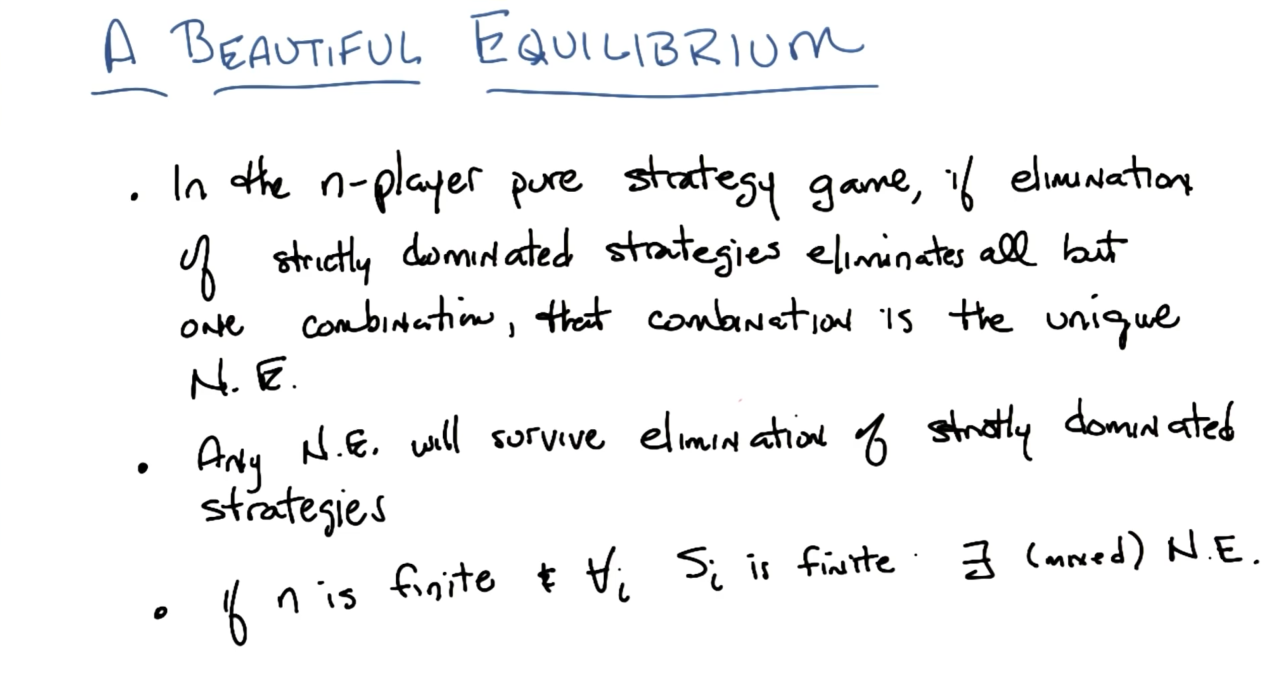 A BEAUTIFUL EQUILIBRIUM
. In the n-player pure strategy game, if elimination
of strictly dominated strategies eliminates all but
one combination, that combination is the unique
N.E.
• Any N.E. will survive elimination of strictly dominated
strategies
• If n is finite & ∀i Si is finite ∃ (mixed) N.E.